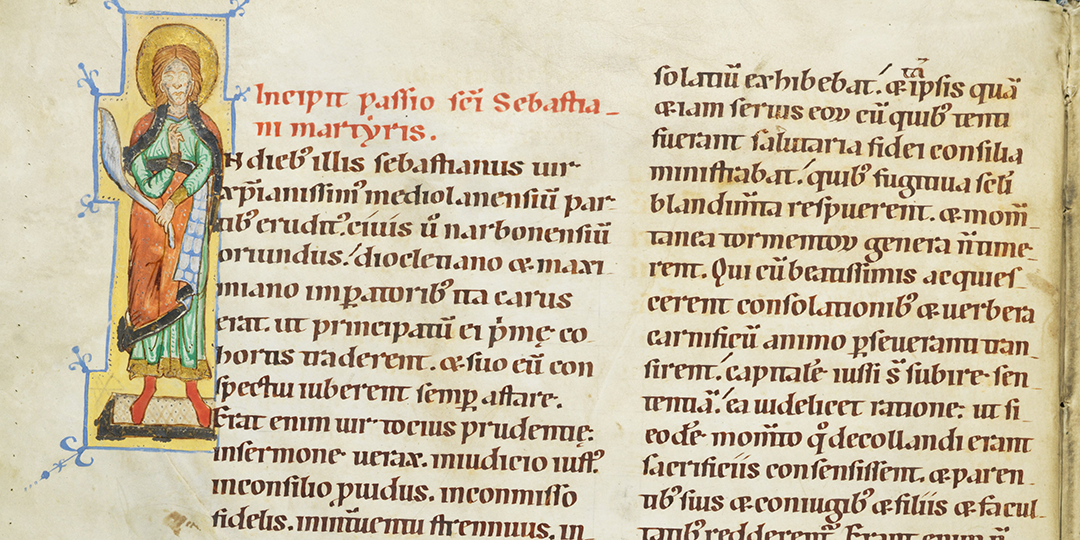 Incipit passio sc̄i Sebastia-
ni martyris.
N dieb' illis sebastianus uir
xp̄ianissim' mediolanensiū par-
tib' erudit'. ciuis ū narbonensiū
oriundus. diocletiano & maxi
miano imꝑatorib' ita carus
erat. ut principatū ei p̄mę co
hortis traderent. & suo eū con
spectu iuberent semꝑ astare.
Erat enim uir tocius prudentię.
insermone uerax. iniudicio iust'.
inconsilio ꝓuidus. inconmisso
fidelis. inint̄uentu strennuus. in
solatiū exhibebat. & ip̄sis quā
tā
& iam serius eoꝝ cū quib' tenti
fuerant salutaria fidei consilia
ministrabat. quib' fugitiua scl̄i
blandim̄ta respuerent. & mom̄
tanea tormentoꝝ genera n̄ time-
rent. Qui cū beatissimis acques-
cerent consolationib' & uerbera
carnificū animo ꝑseueranti tran-
sirent. capitalē iussi s̄ subire sen-
tentiā. ea uidelicet ratione: ut si
eodē mom̄to q̊ decollandi erant
sacrificiis consensissent. & paren-
tib' suis & coniugib' & filiis & facul-
tatib' redderent'. Erant enim